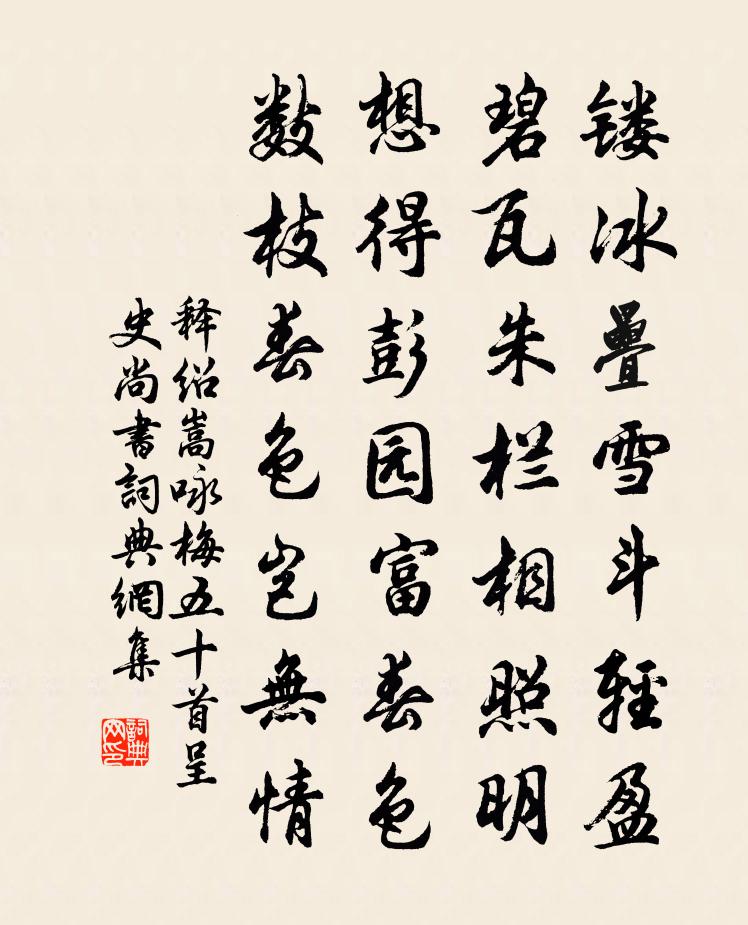 镂冰疊雪斗輕盈
碧瓦朱栏相照明
想得彭园富春色
数枝春色岂無情
释绍嵩咏梅五十首呈
史尚書詞典網集
詞典网印